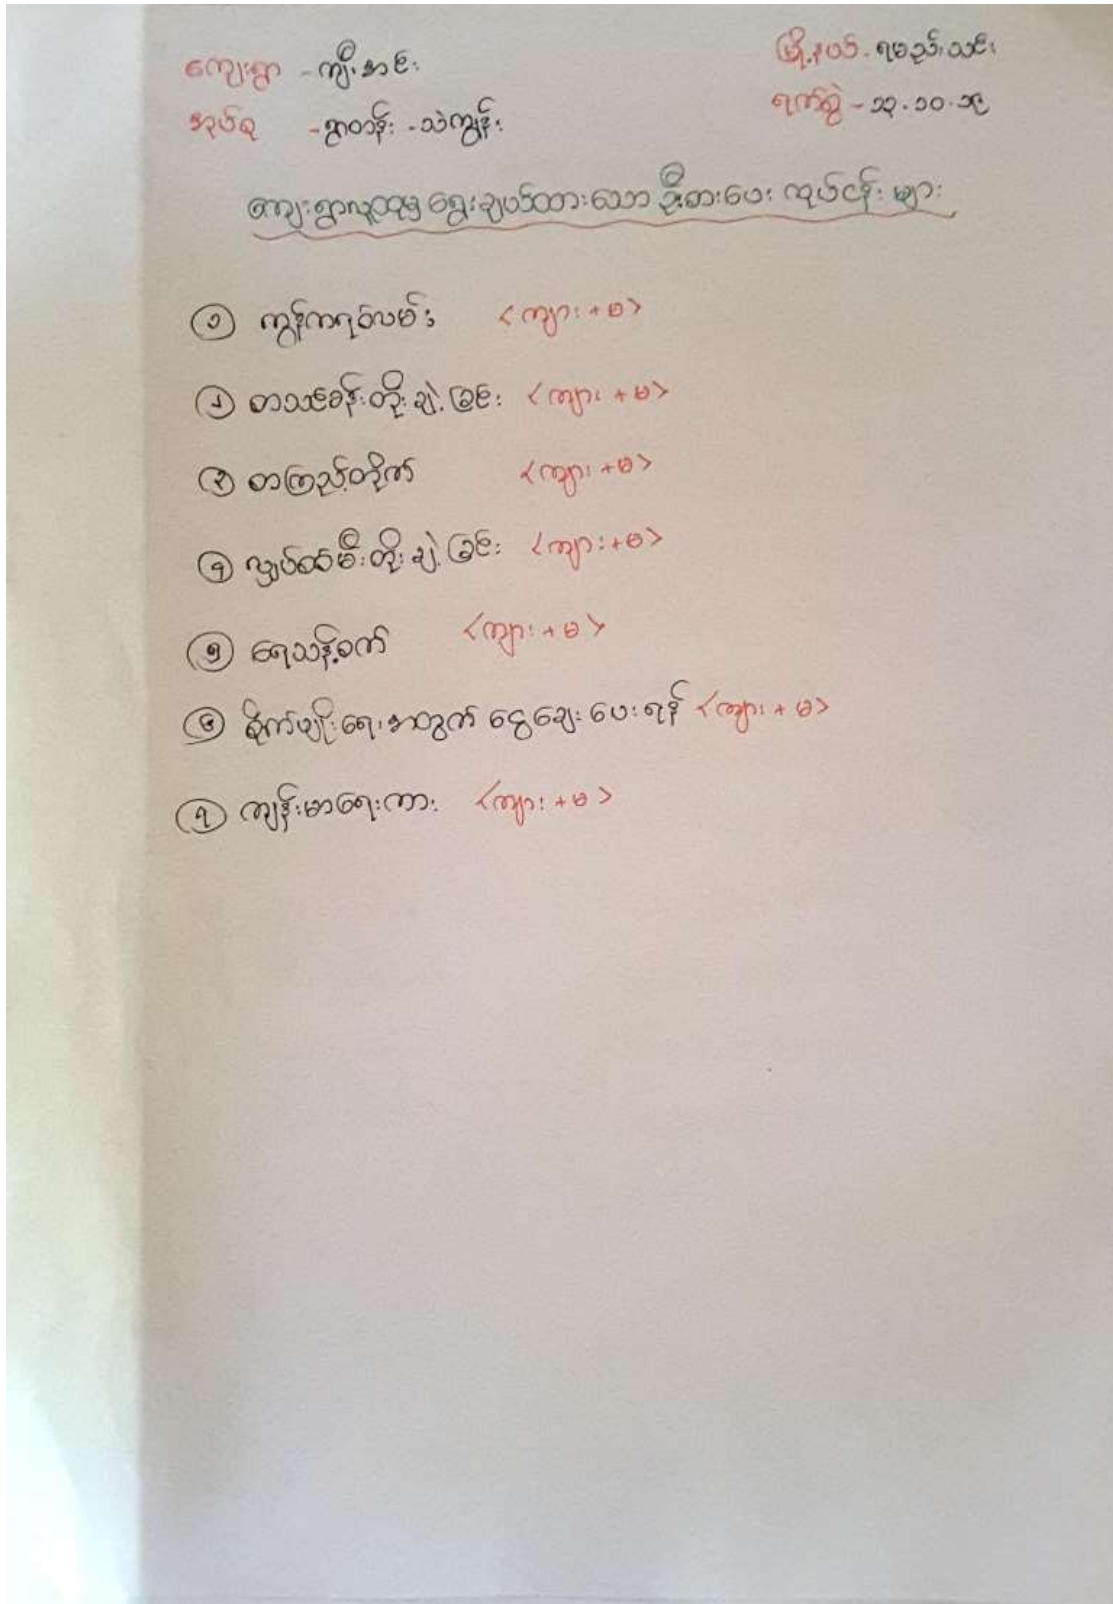 ကျေးရွာ - ကျီးအင်း မြို့နယ် - ရမည်းသင်း
အုပ်စု - ရွာတန်း - သဲကျွန်း ရက်စွဲ - ၁၃.၁၀.၁၉
ကျေးရွာလူထုမှ ရွေးချယ်ထားသော ဦးစားပေး လုပ်ငန်း များ
၁ ကွန်ကရစ်လမ်း <ကျား + မ>
၂ စာသင်ခန်းတိုးချဲ့ခြင်း <ကျား + မ>
၃ စာကြည့်တိုက် <ကျား + မ>
၄ လျှပ်စစ်မီးတိုးချဲ့ခြင်း <ကျား + မ>
၅ ရေသန့်စက် <ကျား + မ>
၆ စိုက်ပျိုးရေးအတွက် ငွေချေးပေးရန် <ကျား + မ>
၇ ကျန်းမာရေးကား <ကျား + မ>